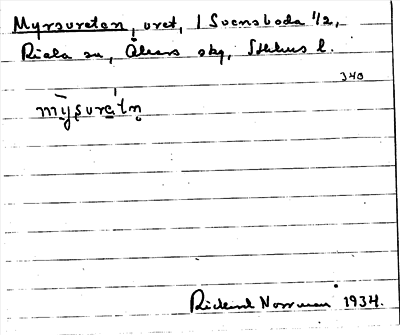 Myrsvreten, vret, 1 Svensboda 1/2,
Riala sn, Åkers skg, Sthlms l.
340
mysvretn
Rickard Norrman 1934.